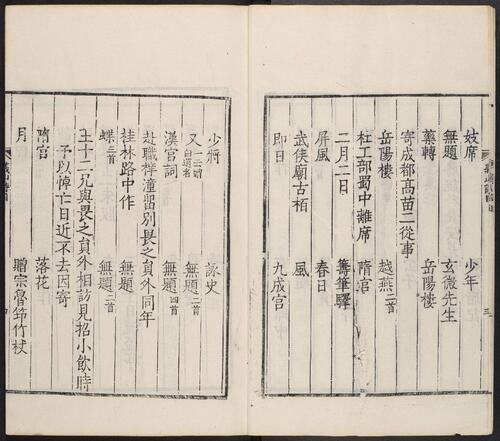 妓席 少年
無題 玄微先生
藥轉 岳陽樓
寄成都高苗二從事
岳陽樓 越燕二首
杜工部蜀中離席 隋宮
二月二日 籌筆驛
屏風 春日
武侯廟古栢 風
即日 九成宮
少將 詠史
又一云贈白道者 無題二首
漢宮詞 無題四首
赴職梓潼留別畏之員外同年
桂林路中作 無題
蝶三首 無題二首
王十二兄與畏之員外相訪見招小飲時
予以悼亡日近不去因寄
隋宮 落花
月 贈宗魯筇竹杖